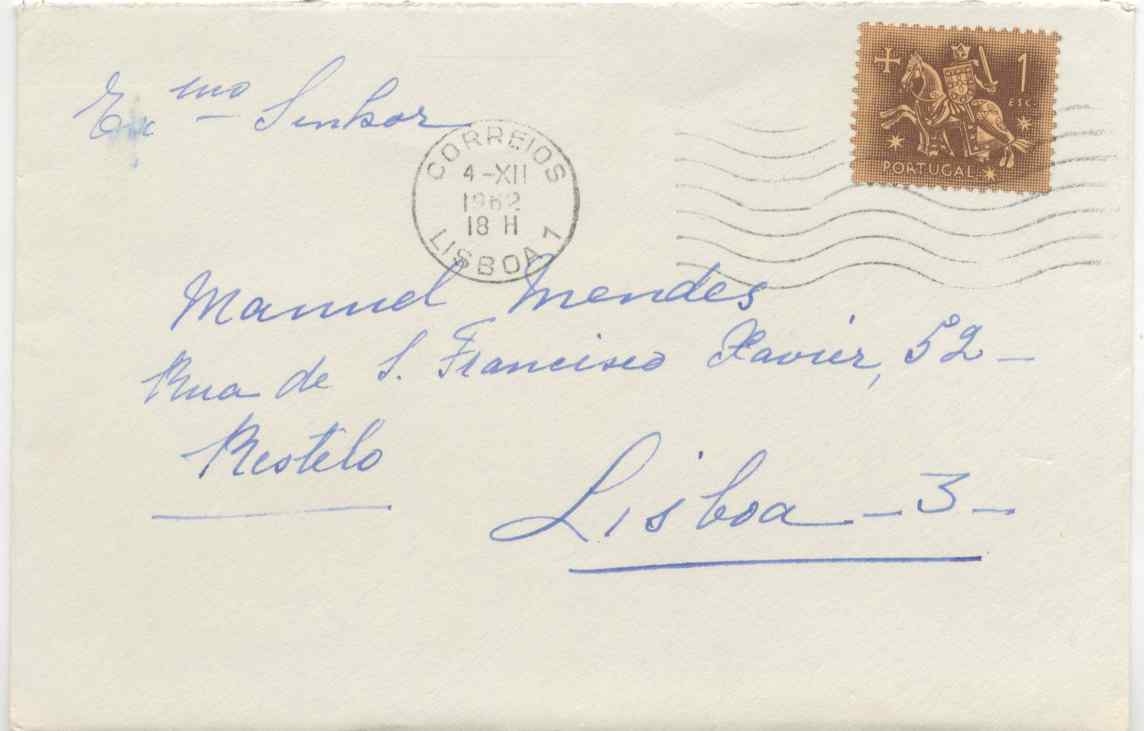 1
ESC.
PORTUGAL
Exmo Senhor
CORREIOS
4-XII
1962
18 H
LISBOA 1
Manuel Mendes
Rua de S. Francisco Xavier, 52-
Restelo
Lisboa - 3 -